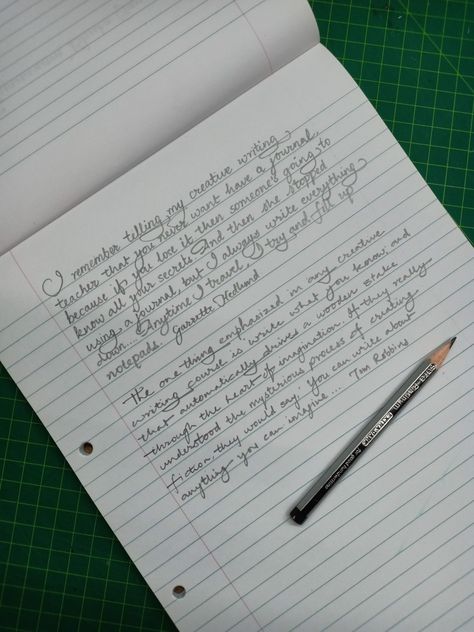 I remember telling my creative writing
teacher that you never want have a journal,
because if you lose it then someone's going to
know all your secrets. And then she stopped
using a journal, but I always write everything
down... Anytime I travel, I try and fill up
notepads. Garrette Hedlund
The one thing emphasized in any creative
writing course is 'write what you know,' and
that automatically drives a wooden stake
through the heart of imagination. If they really
understood the mysterious process of creating
fiction, they would say, 'You can write about
anything you can imagine....' Tom Robbins